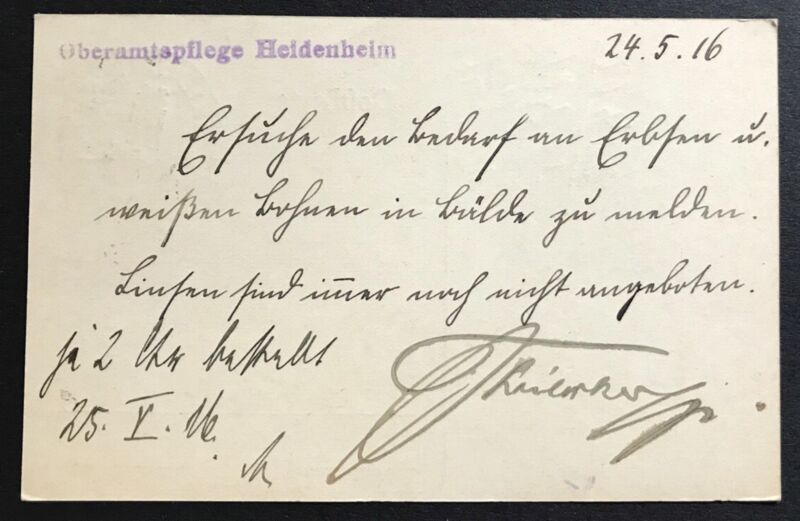 Oberamtspflege Heidenheim
24.5.16
Ersuche den Bedarf an Erbsen u.
weißen Bohnen in Bälde zu melden.
Linsen sind im̅er noch nicht angeboten.
je 2 Ctr bestellt
25. V. 16.